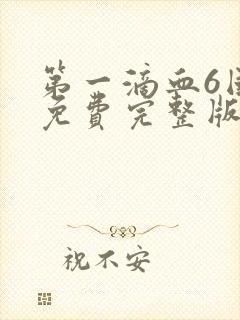 第一滴血6国
免费完整版
祝不安